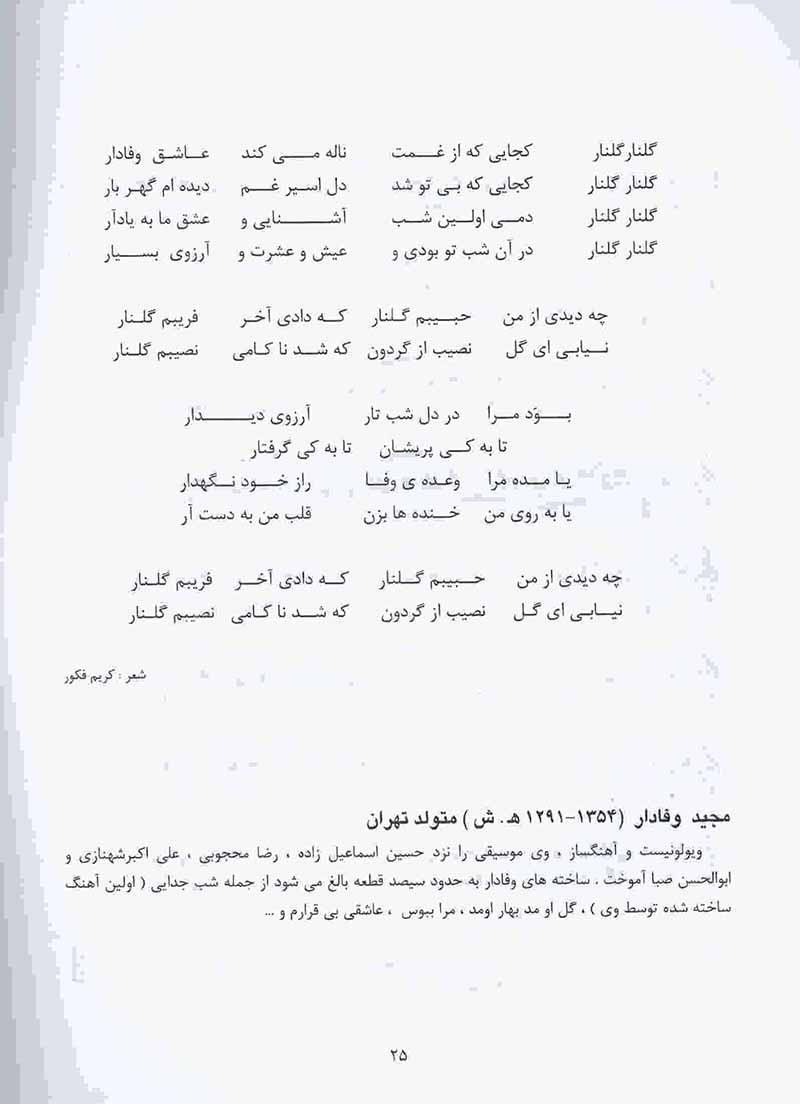 گلنارگلنار کجایی که از غمت ناله می کند عاشق وفادار
گلنار گلنار کجایی که بی تو شد دل اسیر غم دیده ام گهر بار
گلنار گلنار دمی اولین شب آشنایی و عشق ما به یادآر
گلنار گلنار در آن شب تو بودی و عیش و عشرت و آرزوی بسیار
چه دیدی از من حبیبم گلنار که دادی آخر فریبم گلنار
نیابی ای گل نصیب از گردون که شد نا کامی نصیبم گلنار
بوَد مرا در دل شب تار آرزوی دیدار
تا به کی پریشان تا به کی گرفتار
یا مده مرا وعده ی وفا راز خود نگهدار
یا به روی من خنده ها بزن قلب من به دست آر
چه دیدی از من حبیبم گلنار که دادی آخر فریبم گلنار
نیابی ای گل نصیب از گردون که شد نا کامی نصیبم گلنار
شعر : کریم فکور
مجید وفادار (۱۳۵۴-۱۲۹۱ هـ . ش ) متولد تهران
ویولونیست و آهنگساز . وی موسیقی را نزد حسین اسماعیل زاده ، رضا محجوبی ، علی اکبرشهنازی و
ابوالحسن صبا آموخت . ساخته های وفادار به حدود سیصد قطعه بالغ می شود از جمله شب جدایی ( اولین آهنگ
ساخته شده توسط وی ) ، گل او مد بهار اومد ، مرا ببوس ، عاشقی بی قرارم و ...
۲۵